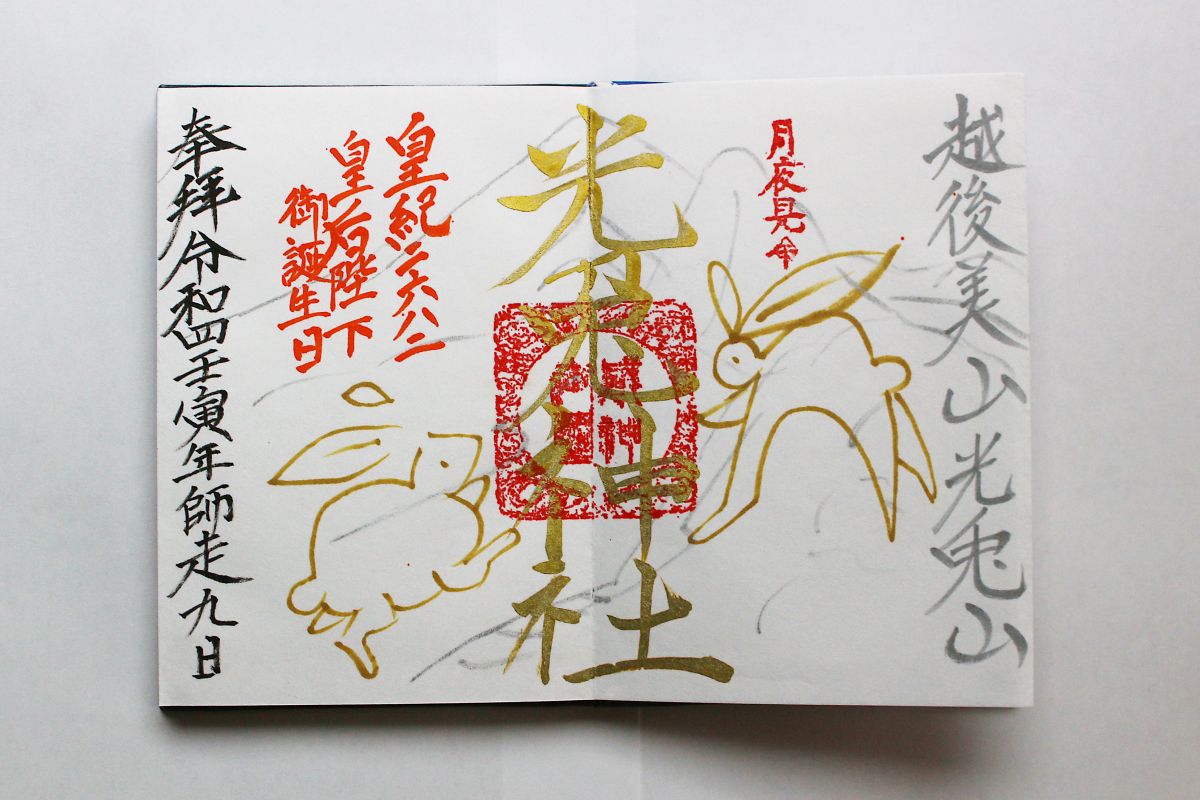 越後美山光兎山
月夜見命
光兎神社
皇紀二六八二
皇后陛下
御誕生日
奉拝令和四壬寅年師走九日